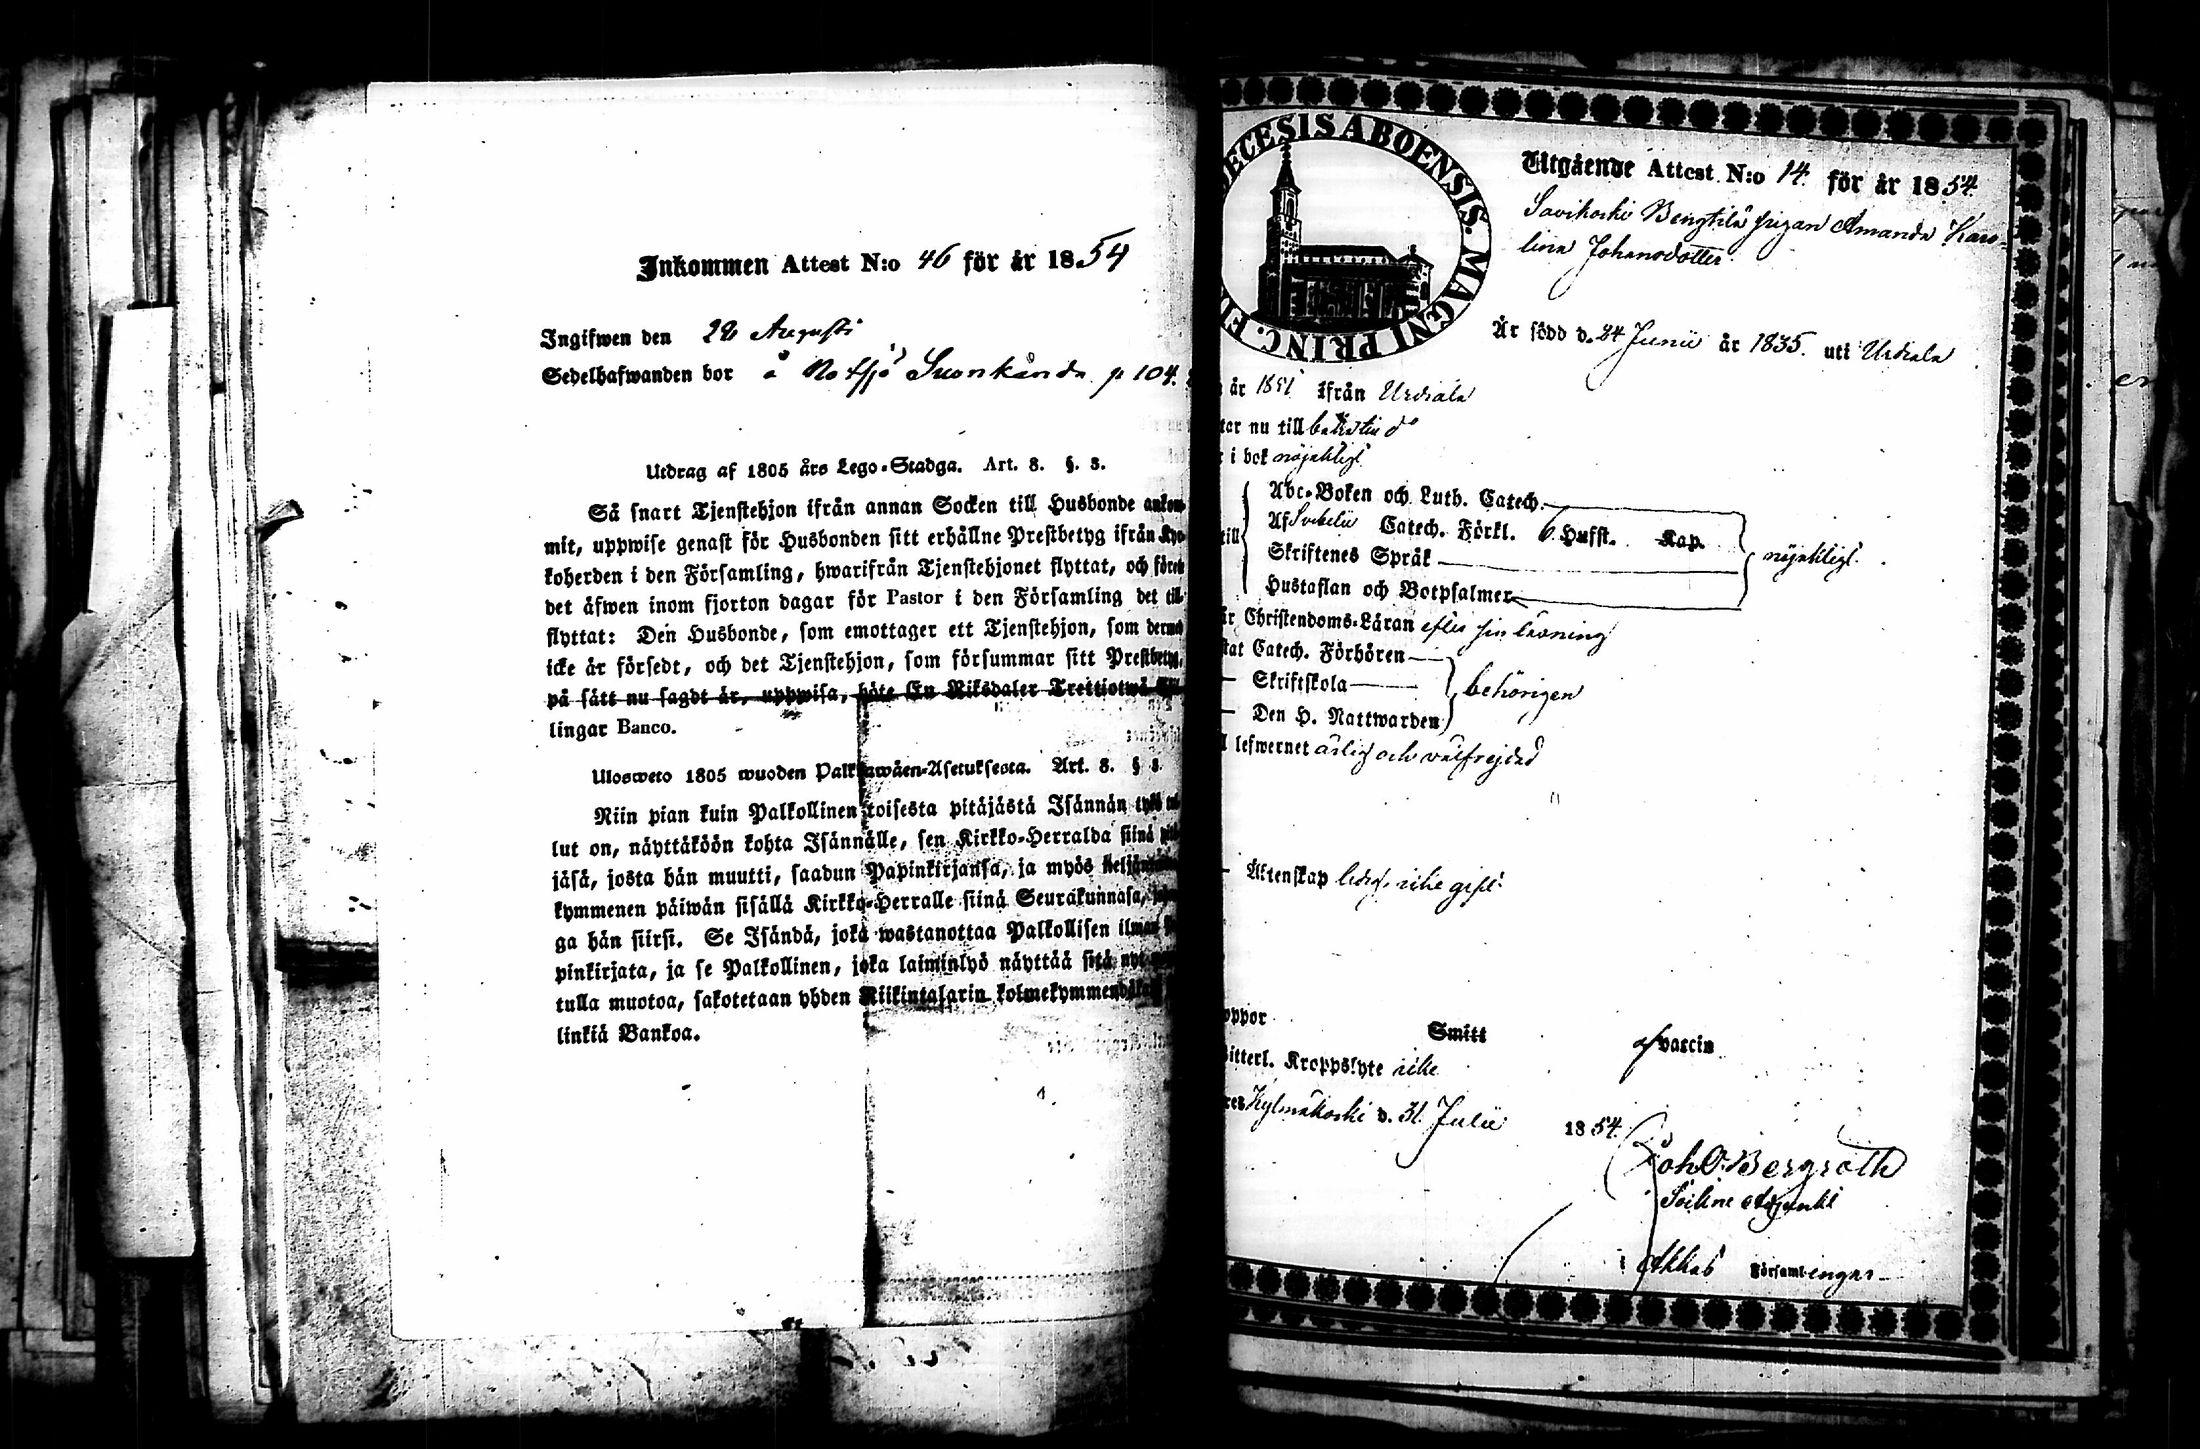 Inkommen Attest N:o 46 för år 1854
Ingifwen den 28 Augusti
Sedelhafwanden bor å Notsjö Suonkånda p 104.
Utdrag af 1805 års Lego-Stadga. Art. 8. §. 3.
Så snart Tjenstehjon ifrån annan Socken till Husbonde ankom-
mit, uppwise genast för Husbonden sitt erhållne Prestbetyg ifrån Kyr-
koherden i den Församling, hwarifrån Tjenstehjonet flyttat, och förete
det äfwen inom fjorton dagar för Pastor i den Församling det till-
flyttat: Den Husbonde, som emottager ett Tjenstehjon, som dermed
icke är försedt, och det Tjenstehjon, som försummar sitt Prestbetyg,
på sätt nu sagdt är, uppwisa, böte En Riksdaler Trettiotwå Skil-
lingar Banco.
Ulosweto 1805 wuoden Palkkawäen-Asetuksesta. Art. 8. §
Niin pian kuin Palkollinen toisesta pitäjästä Isännän työö
lut on, näyttäköön kohta Isännälle, sen Kirkko-Herralda siinä
jäsä, josta hän muutti, saadun Papinkirjansa, ja myös neljän
kymmenen päiwän sisällä Kirkko-Herralle siinä Seurakunnasa,
ga hän siirsi. Se Isändä, joka wastanottaa Palkollisen ilman
pinkirjata, ja se Palkollinen, joka laiminlyö näyttää sitä
tulla muotoa, sakotetaan yhden Riikintalarin kolmekymmendä
linkiä Bankoa.
ECESIS ABOENSIS. MAGNI PRINC. F
Utgående Attest N:o 14. för år 1854.
Savikoski Bengtilä pigan Amanda Karo-
lina Johansdotter.
Är född d. 24 Junii år 1835. uti Urdiala
år 1851 ifrån Urdiala
tar nu till
i bok nöjaktligt
Abc-Boken och Luth. Catech.
Af Svebelii Catech. Förkl. 6 Hufst. Kap.
till Skriftenes Språk nöjaktligt.
Hustaflan och Botpsalmer
Christendoms-Läran efter sin läsning
Catech. Förhören
Skriftskola behörigen
Den H. Nattwarden
lefwernet ärligt och välfrejdad
Äktenskap ledig, icke gift.
oppor Smitt af vaccin
itterl. Kroppslyte icke
Kylmäkoski d. 31. Julii 1854.
Joh O. Bergroth
Sockne Adjunkt
i Akkas Församlingar